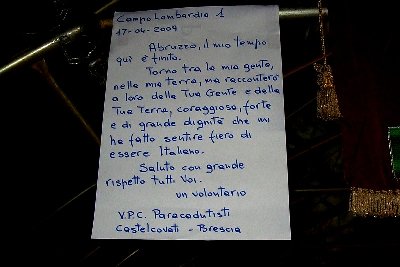 Campo Lombardia 1
17-04-2009
Abruzzo, il mio tempo
qui è finito.
Torno tra la mia gente,
nella mia terra, ma racconterò
a loro della Tua Gente e della
Tua Terra, coraggiosa, forte
e di grande dignità che mi
ha fatto sentire fiero di
essere Italiano.
Saluto con grande
rispetto tutti Voi.
un volontario
V.P.C. Paracadutisti
Castelcovati - Brescia